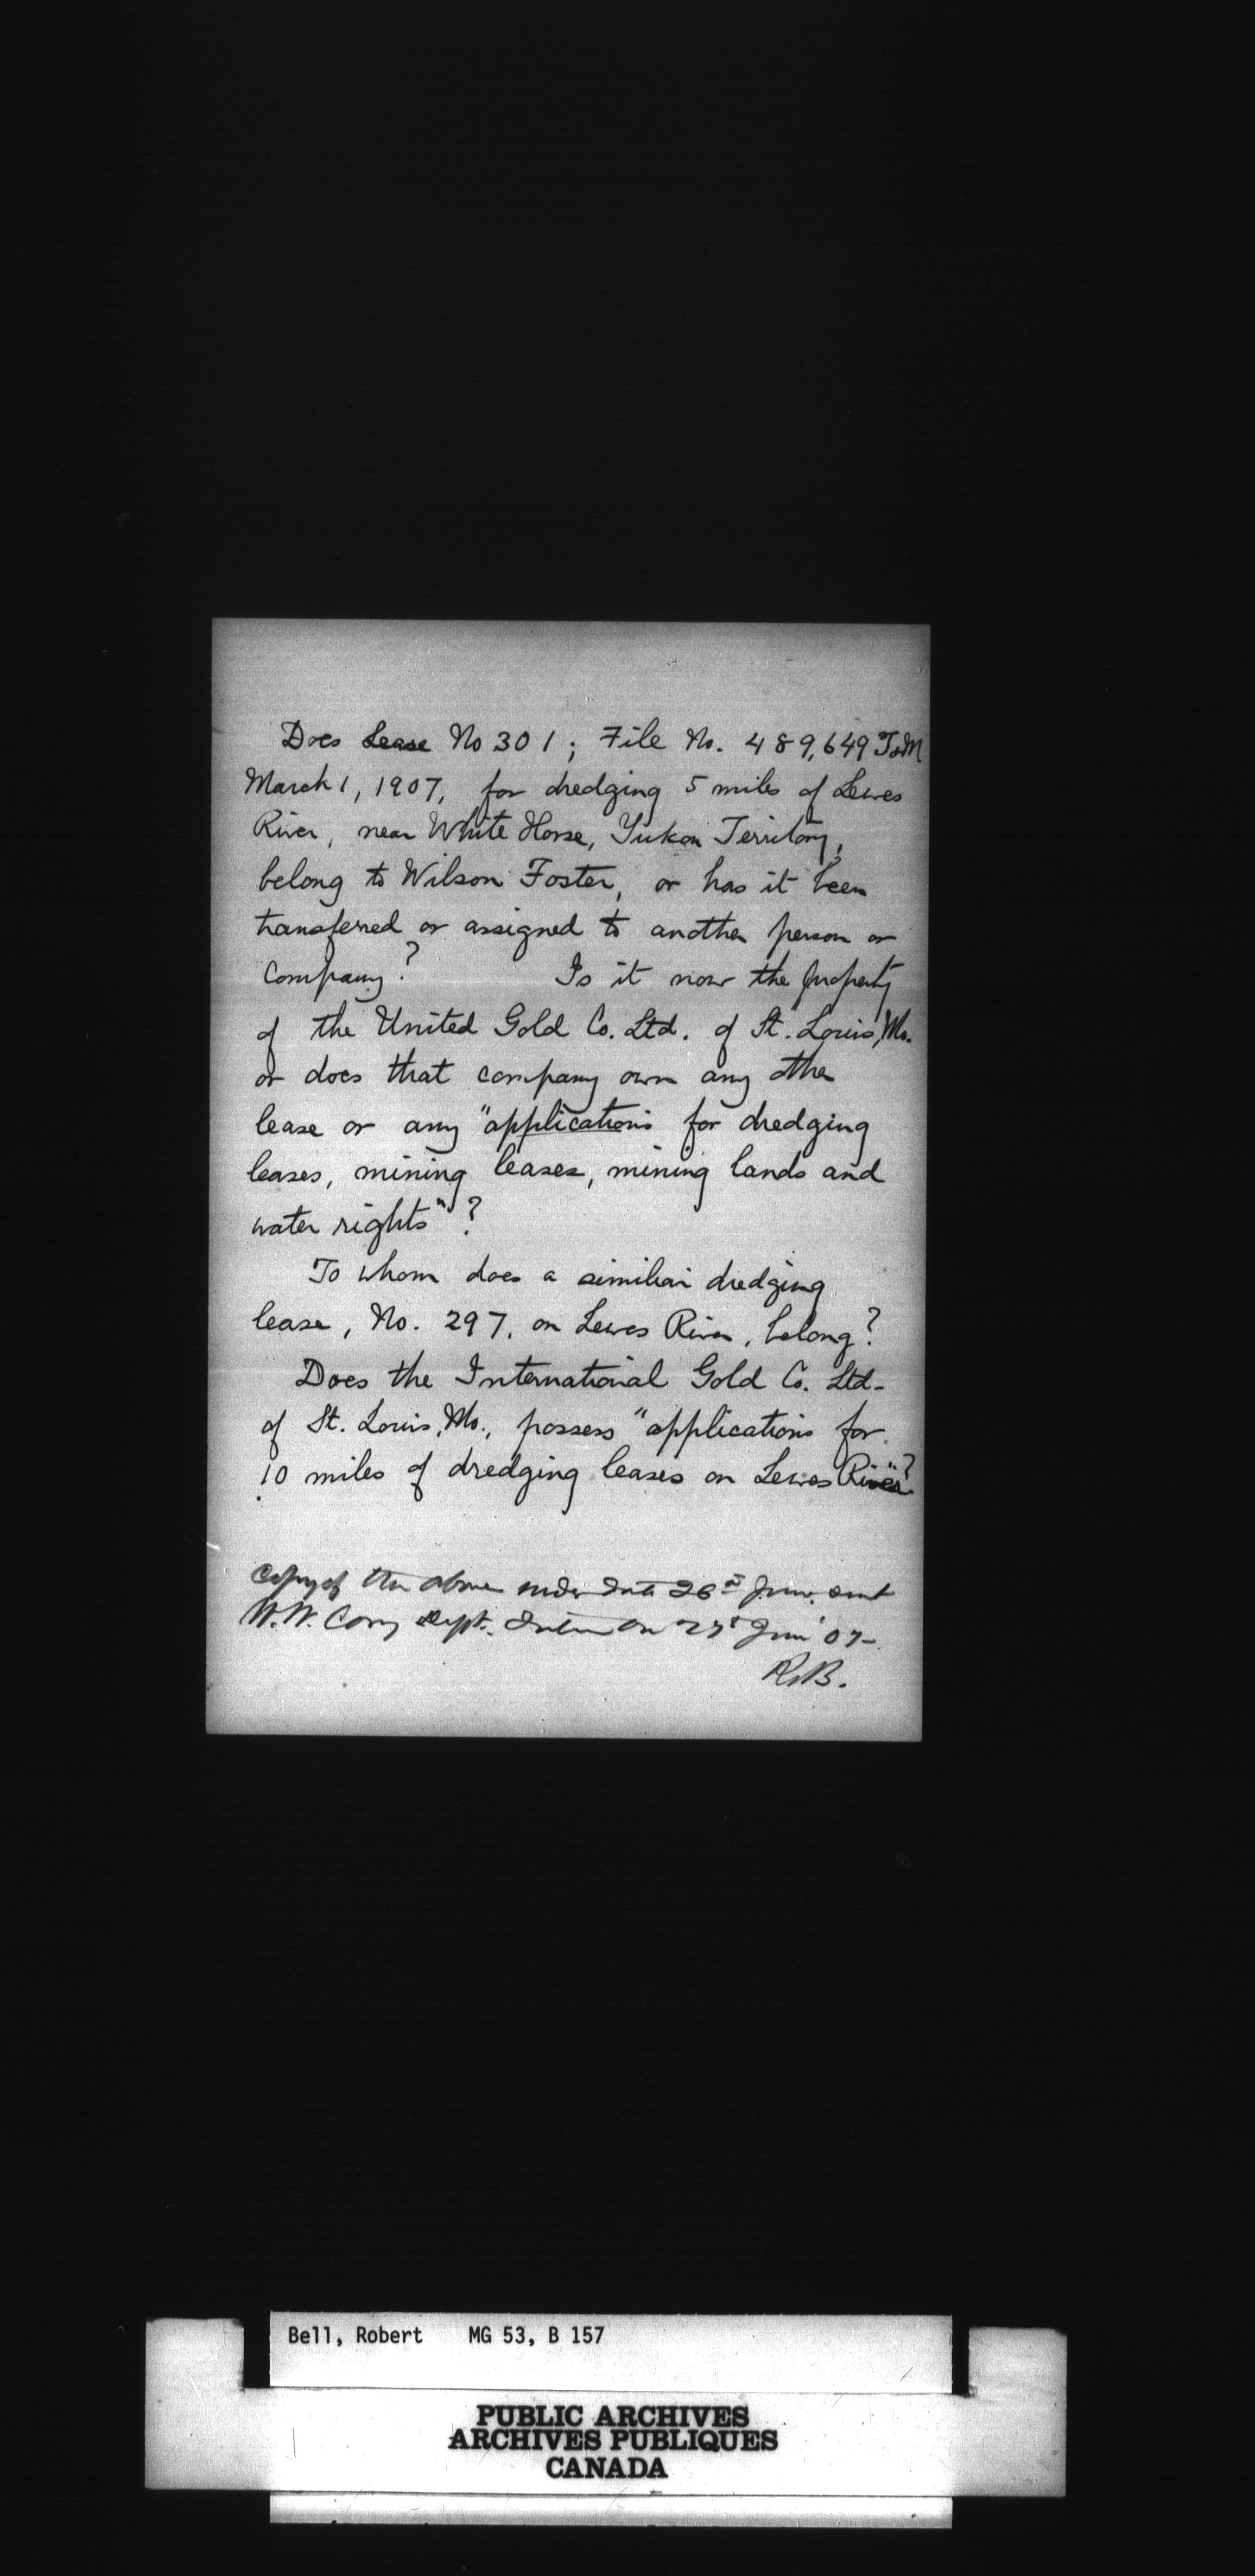 Does Lease No 301; File No. 489,649 T&M
March 1, 1907, for dredging 5 miles of Lewes
River, near White Horse, Yukon Territory,
belong to Wilson Foster, or has it been
transferred or assigned to another person or
company? Is it now the property
of the United Gold Co. Ltd. of St. Louis, Mo.
or does that company own any other
lease or any "applications for dredging
leases, mining leases, mining lands and
water rights"?
To whom does a similiar dredging
lease, No. 297, on Lewes River, belong?
Does the International Gold Co. Ltd.
of St. Louis, Mo., possess "applications for
10 miles of dredging leases on Lewes River"?
Copy of the above under date 26th June sent
W.W. Cory Dept. Interior on 27th June '07
R.B.
Bell, Robert MG 53, B 157
PUBLIC ARCHIVES
ARCHIVES PUBLIQUES
CANADA